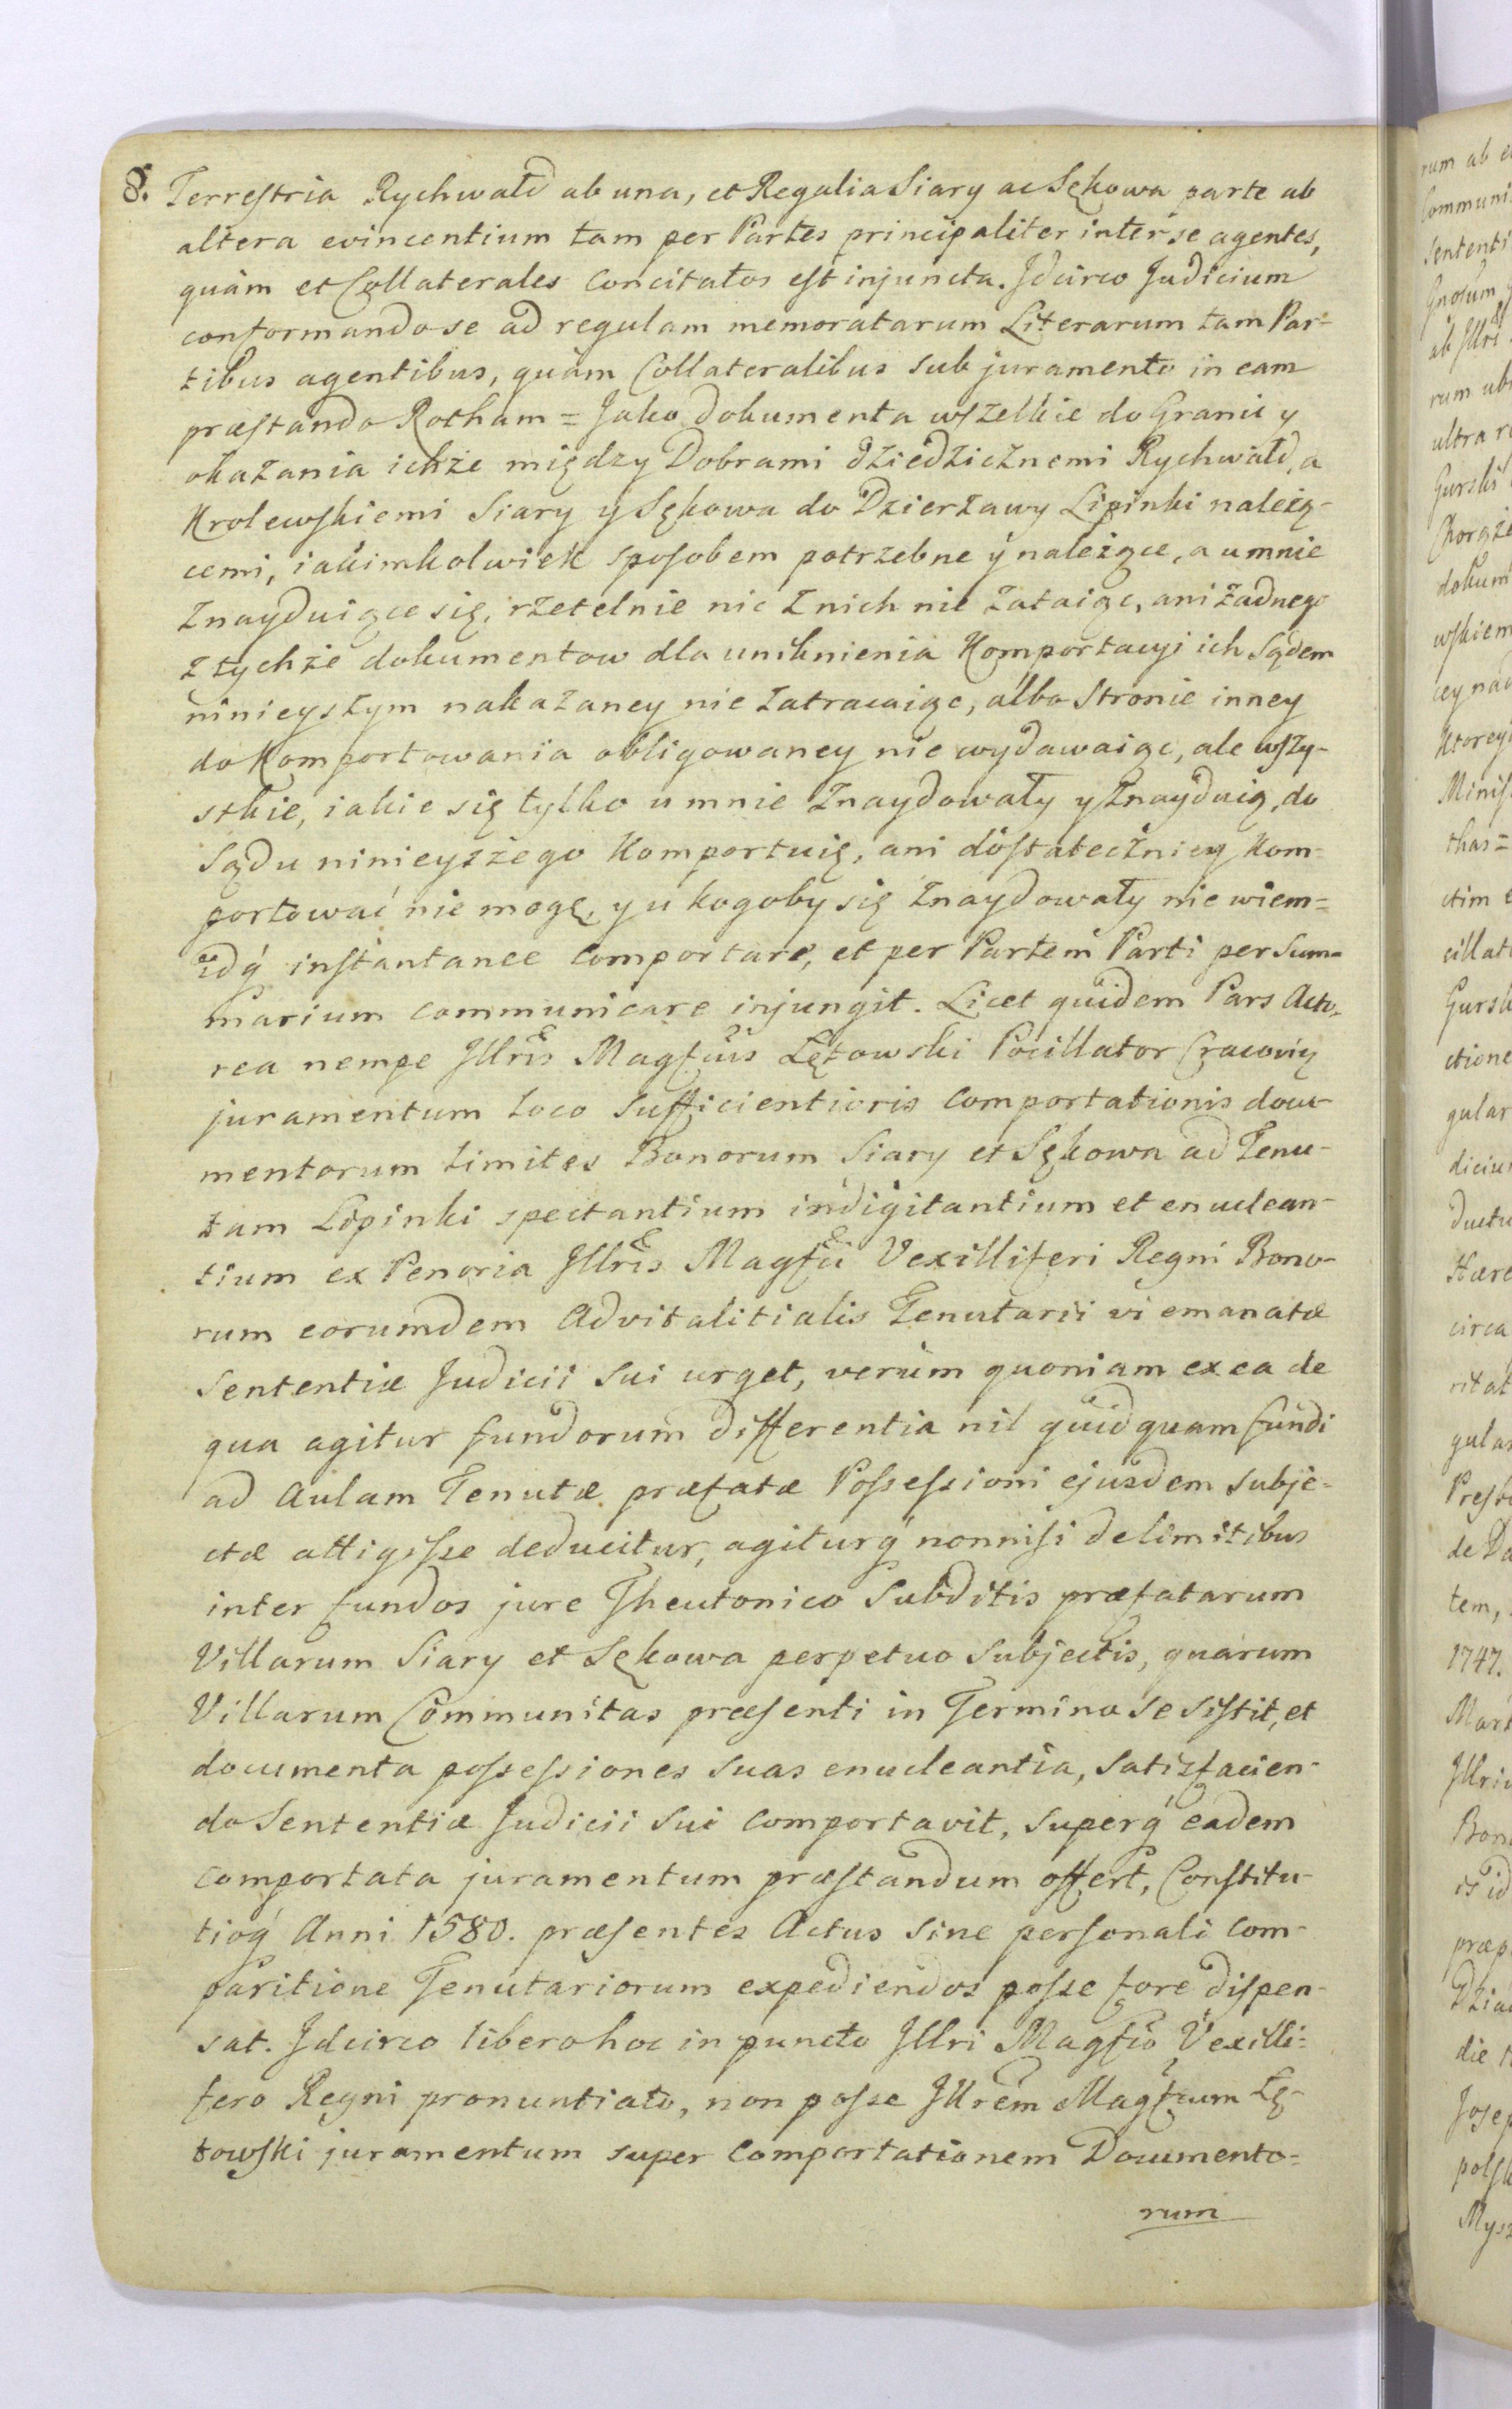 8. Terrestria Rychwałd ab una, et Regalia Siary ac Sękowa parte ab
altera evincentium tam per Partes principaliter inter se agentes,
quàm et Collaterales Concitatos est injuncta. Idcirco Judicium
conformando se ad regulam memoratarum Literarum tam Par-
tibus agentibus, quàm Collateralibus sub juramento in eam
præstando Rotham = Jako dokumenta wszelkie do Granic y
okazania ichże między Dobrami dziedzicznemi Rychwałd, a
Krolewskiemi Siary y Sękowa do Dzierżawy Lipinki należą-
cemi, iakimkolwiek sposobem potrzebne y należące, a u mnie
znayduiące się, rzetelnie nic z nich nie zataiąc, ani żadnego
z tychże dokumentow dla uniknienia Komportacyi ich Sądem
ninieyszym nakazaney nie zatracaiąc, albo Stronie inney
do Komportowania obligowaney nie wydawaiąc, ale wszy-
stkie, iakie się tylko u mnie znaydowały y znayduią, do
Sądu ninieyszego Komportuię, ani dostateczniey Kom-
portować nie mogę, y u kogoby się znaydowały nie wiem =
idq́ instantanee Comportare, et per Partem Parti per Sum-
marium communicare injungit. Licet quidem Pars Acto-
rea nempe Illris Magfcus Łętowski Pocillator Cracovię
juramentum loco Sufficientioris Comportationis docu-
mentorum limites Bonorum Siary et Sękowa ad Tenu-
tam Lipinki spectantium indigitantium et enuclean-
tium ex Penoria Illris Magfci Vexilliferi Regni Bono-
rum eorumdem Advitalitialis Tenutarii vi emanatæ
Sententiæ Judicii sui urget, verùm quoniam ex ea de
qua agitur fundorum differentia nil quidquam fundi
ad Aulam Tenutæ præfatæ Possessioni ejusdem subje-
ctæ attigisse deducitur, agiturq́ nonnisi de limitibus
inter fundos jure Theutonico Subditis præfatarum
Villarum Siary et Sękowa perpetuo subjectis, quarum
Villarum Communitas præsenti in Termino se sistit, et
documenta possessiones suas enucleantia, satisfacien-
do Sententiæ Judicii sui comportavit, superq́ eadem
comportata juramentum præstandum offert, Constitu-
tioq́ Anni 1580. præsentes Actus sine personali Com-
paritione Tenutariorum expediendos posse fore dispen-
sat. Idcirco libero hoc in puncto Illri Magfco Vexilli-
fero Regni pronuntiato, non posse Illrem Magfcum Łę-
towski juramentum super Comportationem Documento-
rum